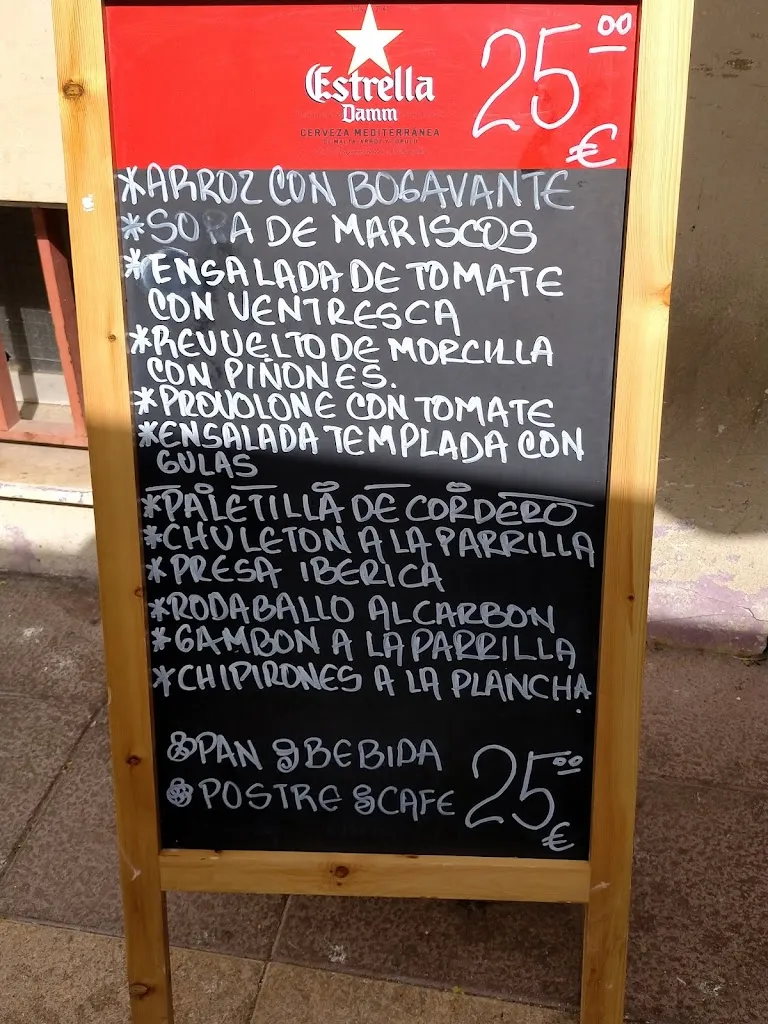 Estrella
Damm
CERVEZA MEDITERRÁNEA
25⁰⁰
€
*ARROZ CON BOGAVANTE
*SOPA DE MARISCOS
*ENSALADA DE TOMATE
CON VENTRESCA
*REVUELTO DE MORCILLA
CON PIÑONES.
*PROVOLONE CON TOMATE
*ENSALADA TEMPLADA CON
GULAS
*PALETILLA DE CORDERO
*CHULETON A LA PARRILLA
*PRESA IBERICA
*RODABALLO AL CARBON
*GAMBON A LA PARRILLA
*CHIPIRONES A LA PLANCHA.
PAN BEBIDA
POSTRE CAFE
25⁰⁰
€